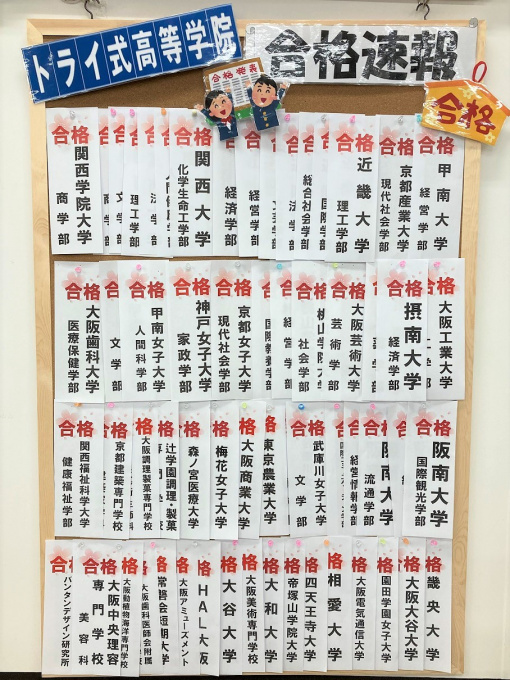 トライ式高等学院
合格速報
合格発表
合格
合格 甲南大学 経営学部
合格 京都産業大学 現代社会学部
合格 近畿大学 理工学部
国際学部
総合社会学部
法学部
経営学部
経済学部
合格 関西大学 化学生命工学部
法学部
理工学部
文学部
商学部
合格 関西学院大学 商学部
大阪工業大学 工学部
合格 摂南大学 経済学部
大阪芸術大学 芸術学部
社会学部
経営学部
合格 京都女子大学 現代社会学部
合格 神戸女子大学 家政学部
合格 甲南女子大学 人間科学部
文学部
合格 大阪歯科大学 医療保健学部
合格 阪南大学 国際観光学部
阪南大学 流通学部
経営情報学部
合格 武庫川女子大学 文学部
格 東京農業大学
格 大阪商業大学
格 梅花女子大学
合格 森ノ宮医療大学
合格 辻学園調理・製菓専門学校
格 大阪調理製菓専門学校
合格 京都建築専門学校
合格 関西福祉科学大学 健康福祉学部
格 畿央大学
格 大阪大谷大学
格 園田学園女子大学
格 大阪電気通信大学
格 相愛大学
格 四天王寺大学
格 帝塚山学院大学
格 大和大学
格 大阪美術専門学校
格 大谷大学
格 HAL大阪
格 大阪アミューズメント
格 常磐会短期大学
格 大阪歯科医師会附属
格 大阪動植物海洋専門学校
合格 大阪中央理容専門学校 美容科
合格 バンタンデザイン研究所